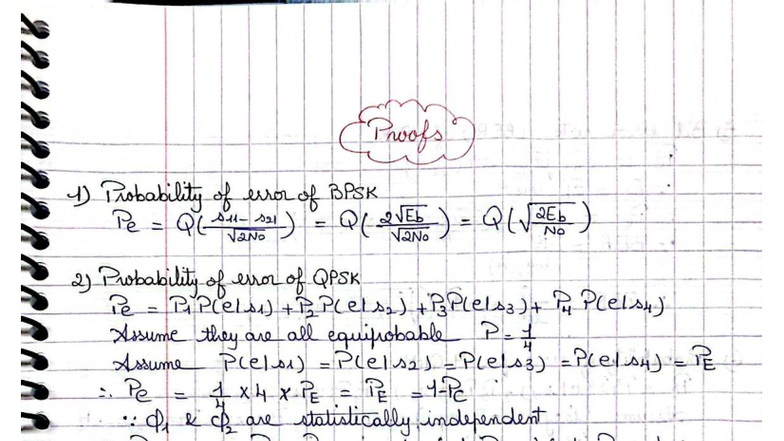 Proofs
1) Probability of error of BPSK
Pe = Q(s11 - s21 / √2No) = Q(2√Eb / √2No) = Q(√(2Eb / No))
2) Probability of error of QPSK
Pe = P1 P(e|s1) + P2 P(e|s2) + P3 P(e|s3) + P4 P(e|s4)
Assume they are all equiprobable P = 1/4
Assume P(e|s1) = P(e|s2) = P(e|s3) = P(e|s4) = PE
∴ Pe = 1/4 x 4 x PE = PE = 1-Pc
∵ ϕ1 & ϕ2 are statistically independent